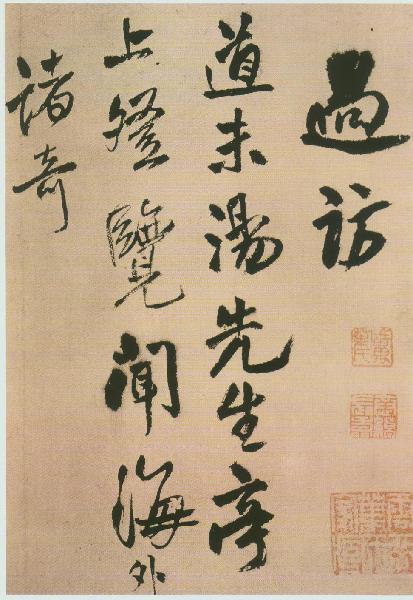 過訪
道未湯先生亭
上登覽聞海外
諸奇